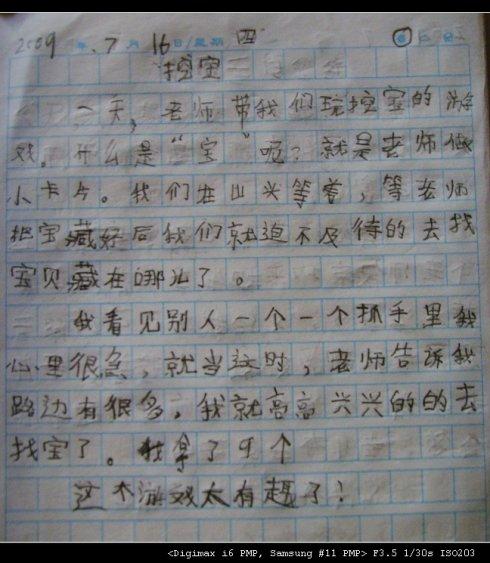 2009年7月16日/星期四
挖宝
一天，老师带我们玩挖宝的游
戏。什么是“宝”呢？就是老师做
小卡片。我们在山头等着，等老师
把宝藏好后我们就迫不及待的去找
宝贝藏在哪儿了。
我看见别人一个一个抓手里我
心里很急，就当这时，老师告诉我
路边有很多，我就高高兴兴的的去
找宝了。我拿了9个
这个游戏太有趣了！
<Digimax i6 PMP, Samsung #11 PMP> F3.5 1/30s ISO203